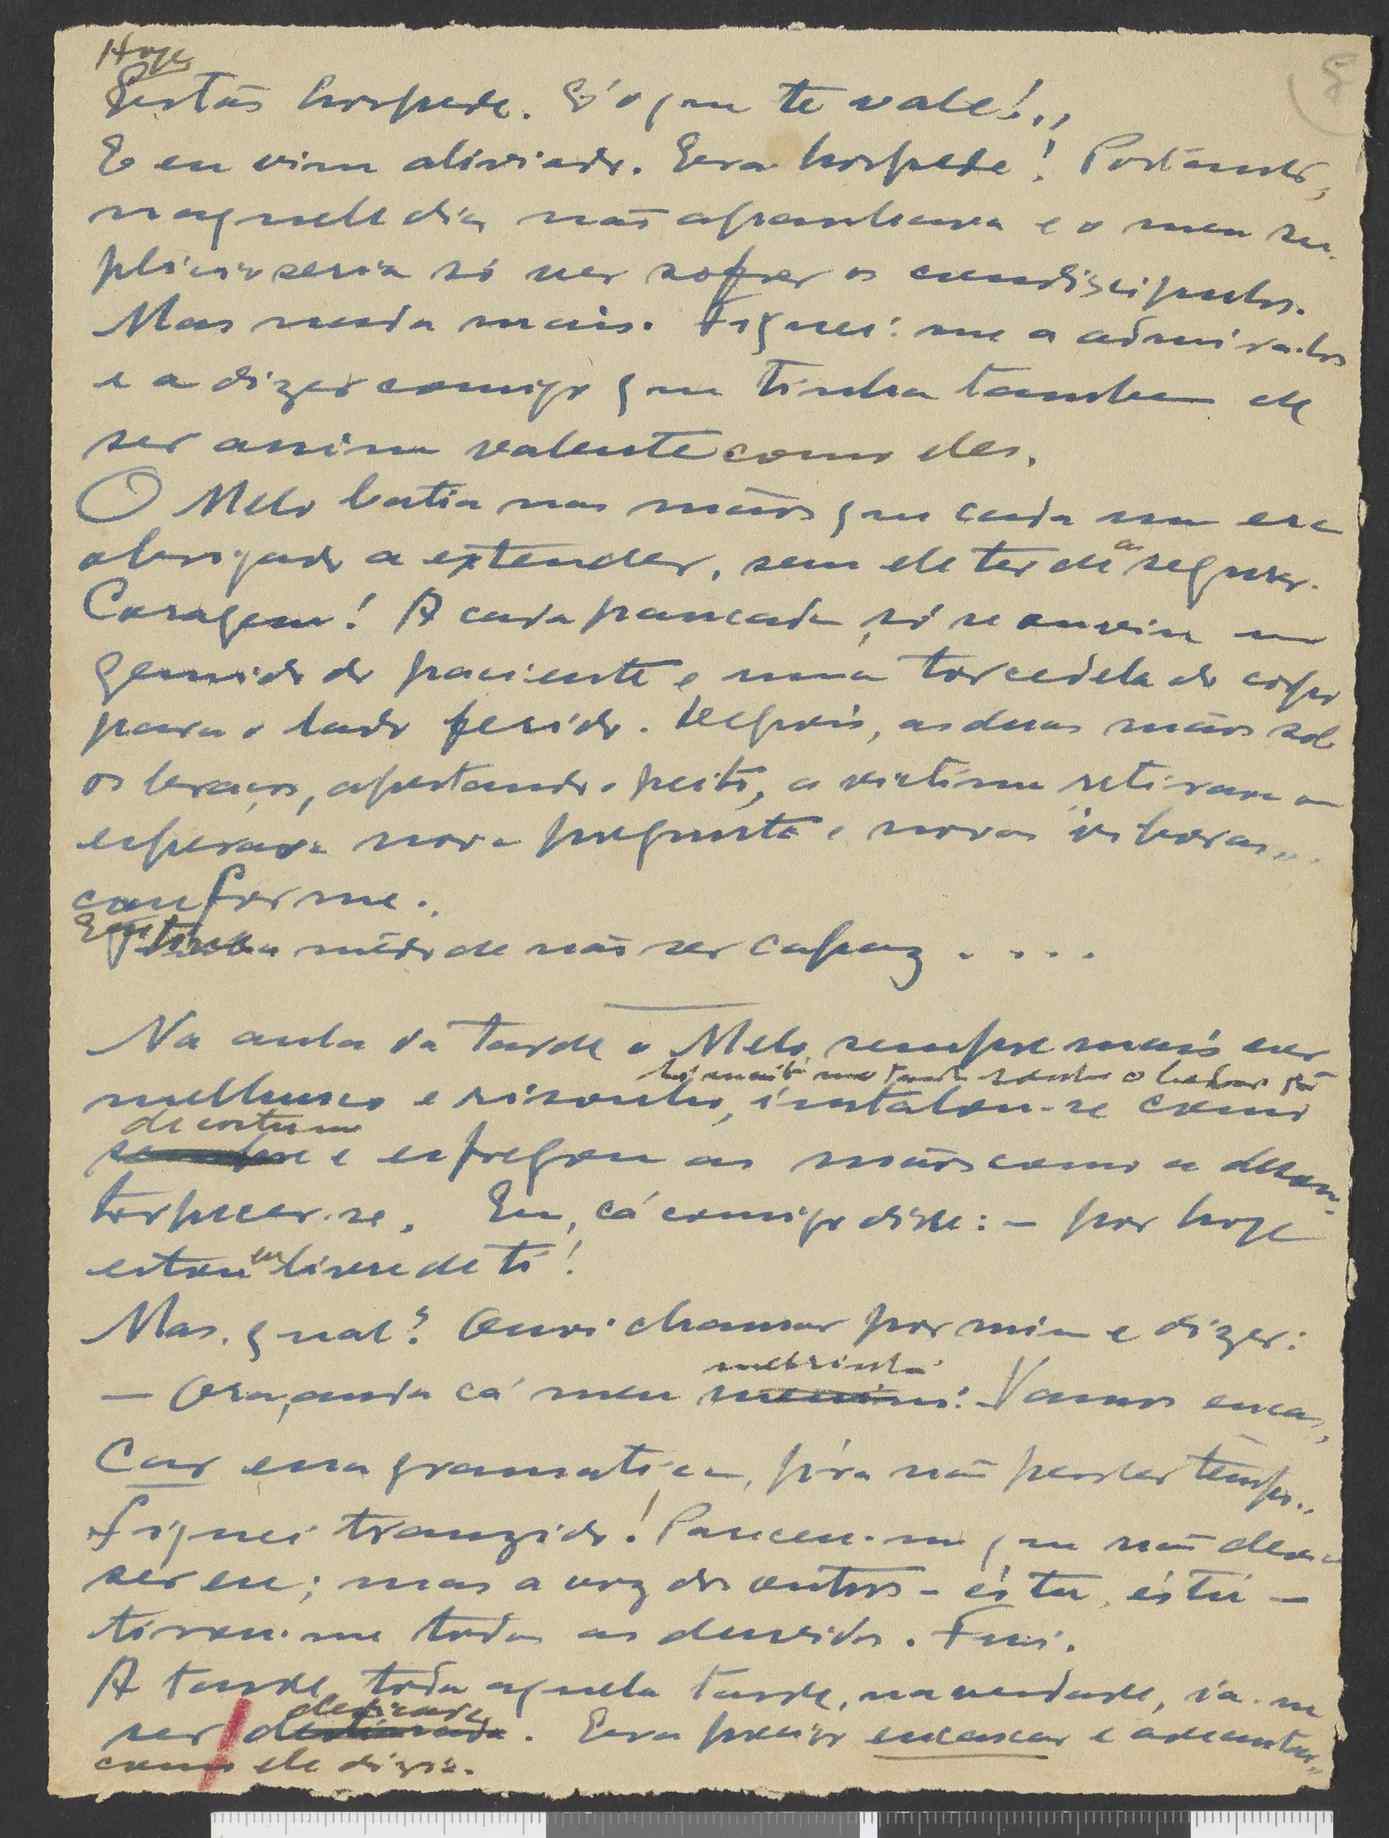 Hoje
Estás hospede. É o que te vale!..
E eu vim aliviado. Era hospede! Portanto,
naquele dia não apanhava e o meu su-
plicio seria só ver sofrer os condiscipulos.
Mas nada mais. Fiquei-me a admira-los
e a dizer comigo que tinha tambem de
ser assim valente como eles.
O Melo batia nas mãos que cada um era
obrigado a extender, sem ele ter de as segurar.
Coragem! A cada pancada só se ouvia um
gemido do paciente e uma torcedela do corpo
para o lado ferido. Depois, as duas mãos sob
os braços, apertando o peito, a victima retirava ou
esperava nova pregunta e novas
conforme..
Eu tinha mêdo de não ser capaz . . . .
Na aula da tarde o Melo, sempre mais ver
melhusco e risonho, instalou-se como
de costume
sempre e esfregou as mãos como a desen-
torpecer-se. Eu, cá comigo disse: — por hoje
estou eu livre de ti!
Mas, qual? Ouvi chamar por mim e dizer:
mestrinho
— Ora, anda cá meu menino! Vamos encas-
car essa gramatica, p'ra não perder tempo..
Fiquei tranzido! Pareceu-me que não devia
ser eu; mas a voz dos outros - és tu, és tu —
tirou-me todas as duvidas. Fui.
A tarde, toda aquela tarde, na verdade, ia-me
dedicada
ser destinada. Era preciso encascar e adeantar,
como ele dizia.